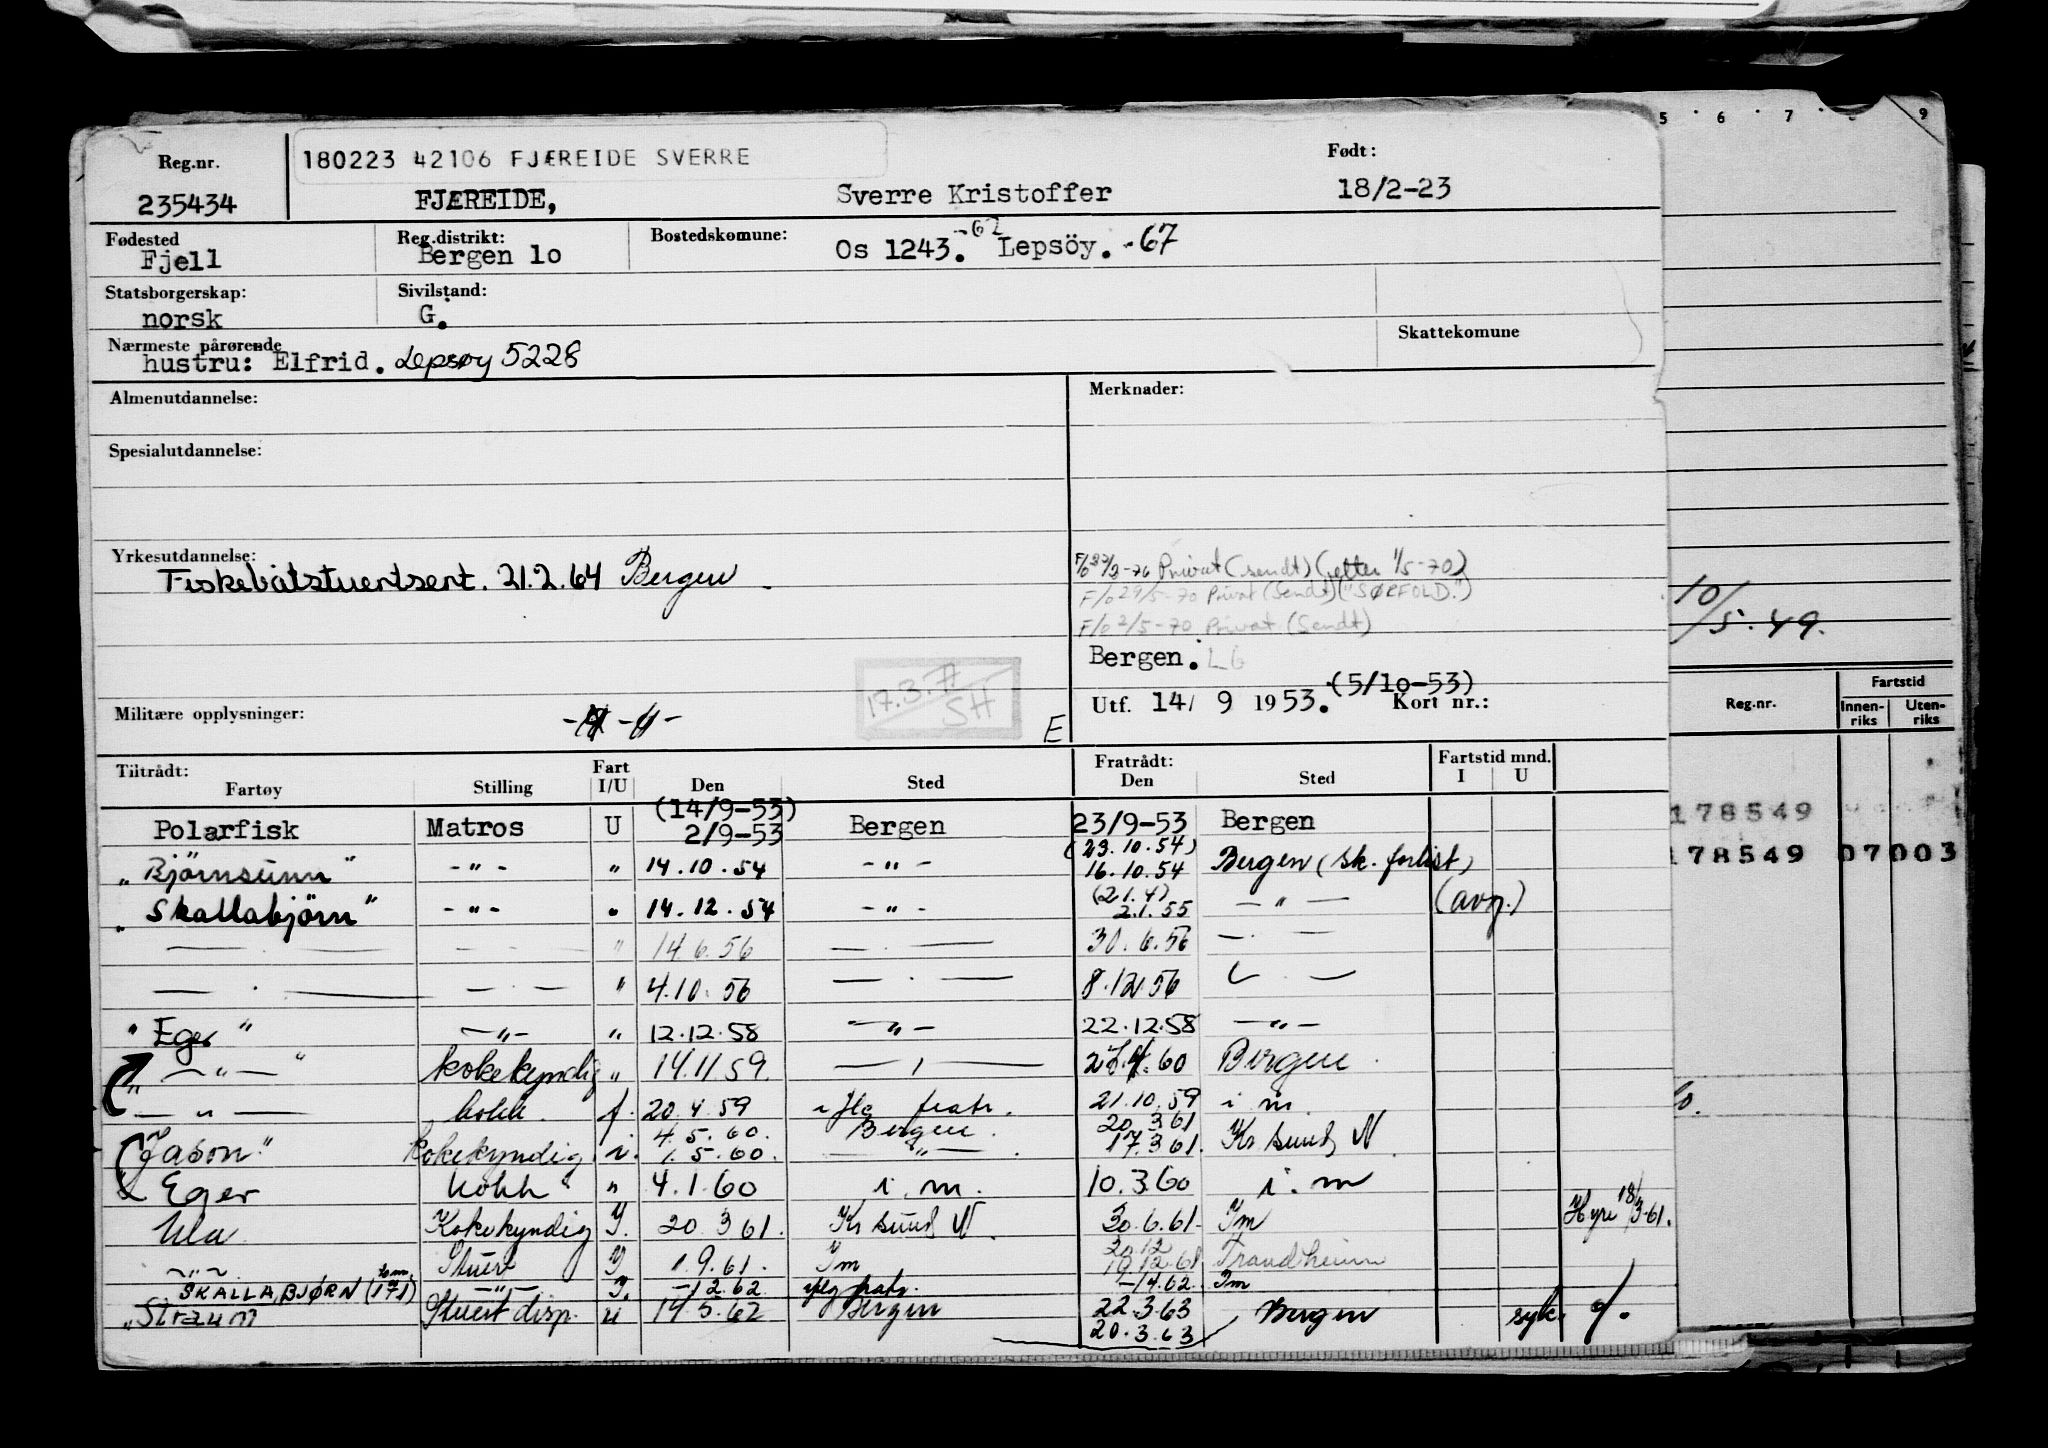 5 · 6 · 7 · 9
Reg.nr. 180223 42106 FJÆREIDE SVERRE Født:
235434 FJÆREIDE, Sverre Kristoffer 18/2-23
Fødested Reg.distrikt: Bostedskomune: -62
Fjell Bergen lo Os 1243. Lepsöy. -67
Statsborgerskap: Sivilstand:
norsk G.
Nærmeste pårørende Skattekomune
hustru: Elfrid. Lepsøy 5228
Almenutdannelse: Merknader:
Spesialutdannelse:
Yrkesutdannelse: Privat (sendt) (etter 1/5-70)
Fiskebåtstuertsert. 21.2.64 Bergen
F/o 29/5-70 Privat (Sendt) ("SØRFOLD.")
F/o 2/5-70 Privat (Sendt)
10/5.49.
Bergen. LG
17.3.71 SH
(5/10-53)
Militære opplysninger: E Utf. 14/ 9 1953. Kort nr.:
Reg.nr. Fartstid
Innen-riks Uten-riks
Tiltrådt: Fart Fratrådt: Fartstid mnd.
Fartøy Stilling I/U Den Sted Den Sted I U
(14/9-53)
Polarfisk Matros U 2/9-53 Bergen 23/9-53 Bergen
178549
(23.10.54)
„Björnsunn" -"- " 14.10.54 -"- 16.10.54 Bergen (sk. forlist)
178549 07003
(2.1.4)
„Skallabjörn" -"- " 14.12.54 -"- 2.1.55 -"- (avg.)
" 14.6.56 30.6.56
" 4.10.56 8.12.56
"Eger" -"- " 12.12.58 -"- 22.12.58 -"-
„ -"- " kokekyndig " 14.11.59. Bergen
-"- kokk. f. 20.4.59 iflg fratr. 21.10.59 i m.
4.5.60. Bergen. 20.3.61
"Jason" kokekyndig i. 1.5.60. -"- 17.3.61. Kr sund N.
Eger kokk " 4.1.60 i.m. 10.3.60 i.m
Ula Kokekyndig I. 20.3.61. Kr sund N. 30.6.61. Im Hyre 18/3-61.
20.12
-"- Stuert I 1.9.61. Im 19.12.61 Trondheim
SKALLABJØRN -"- I. -1.2.62 iflg fratr. -14.62. Im
„Straum Stuert disp. u 14.5.62 Bergen 22.3.63 Bergen syk.
20.3.63